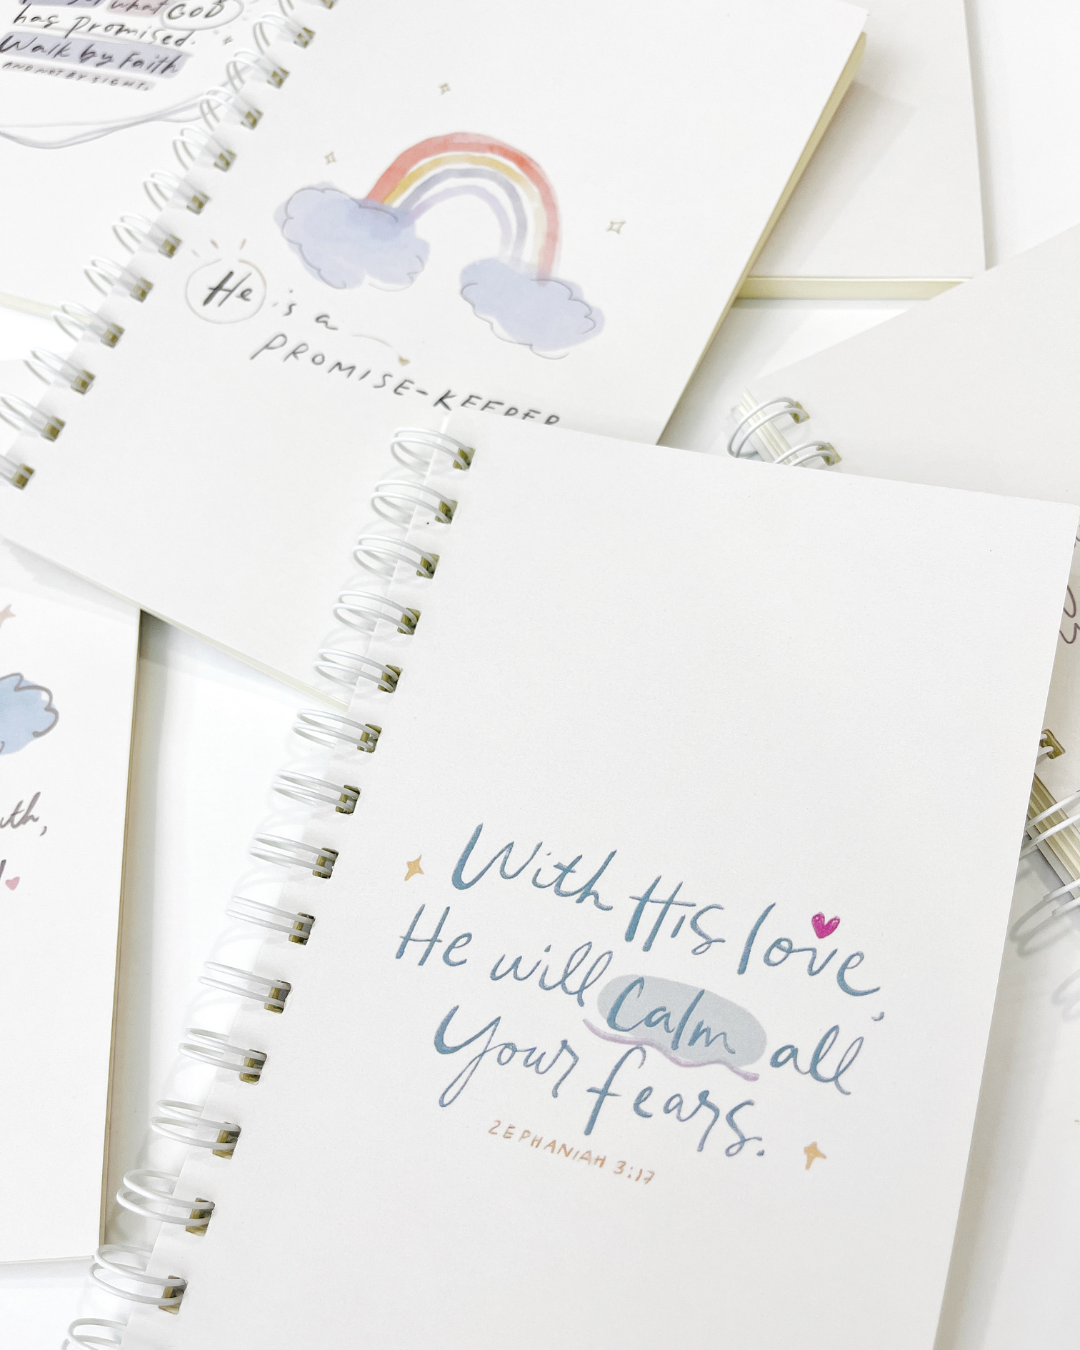 what GOD
has Promised.
Walk by Faith
AND NOT BY SIGHT.
He is a
PROMISE-KEEPER
With His love,
He will Calm all
Your fears.
ZEPHANIAH 3:17